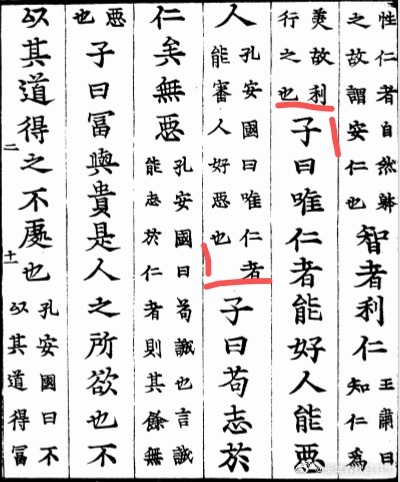 性仁者自然軆
之故謂安仁也
智者利仁
王肅曰
知仁爲
羙故利
行之也
子曰唯仁者能好人能惡
人
孔安國曰唯仁者
能審人好惡也
子曰苟志於
仁矣無惡
孔安國曰苟誠也言誠
能志於仁者則其餘無
惡
也
子曰冨與貴是人之所欲也不
以其道得之不處也
孔安國曰不
以其道得冨
二
十一